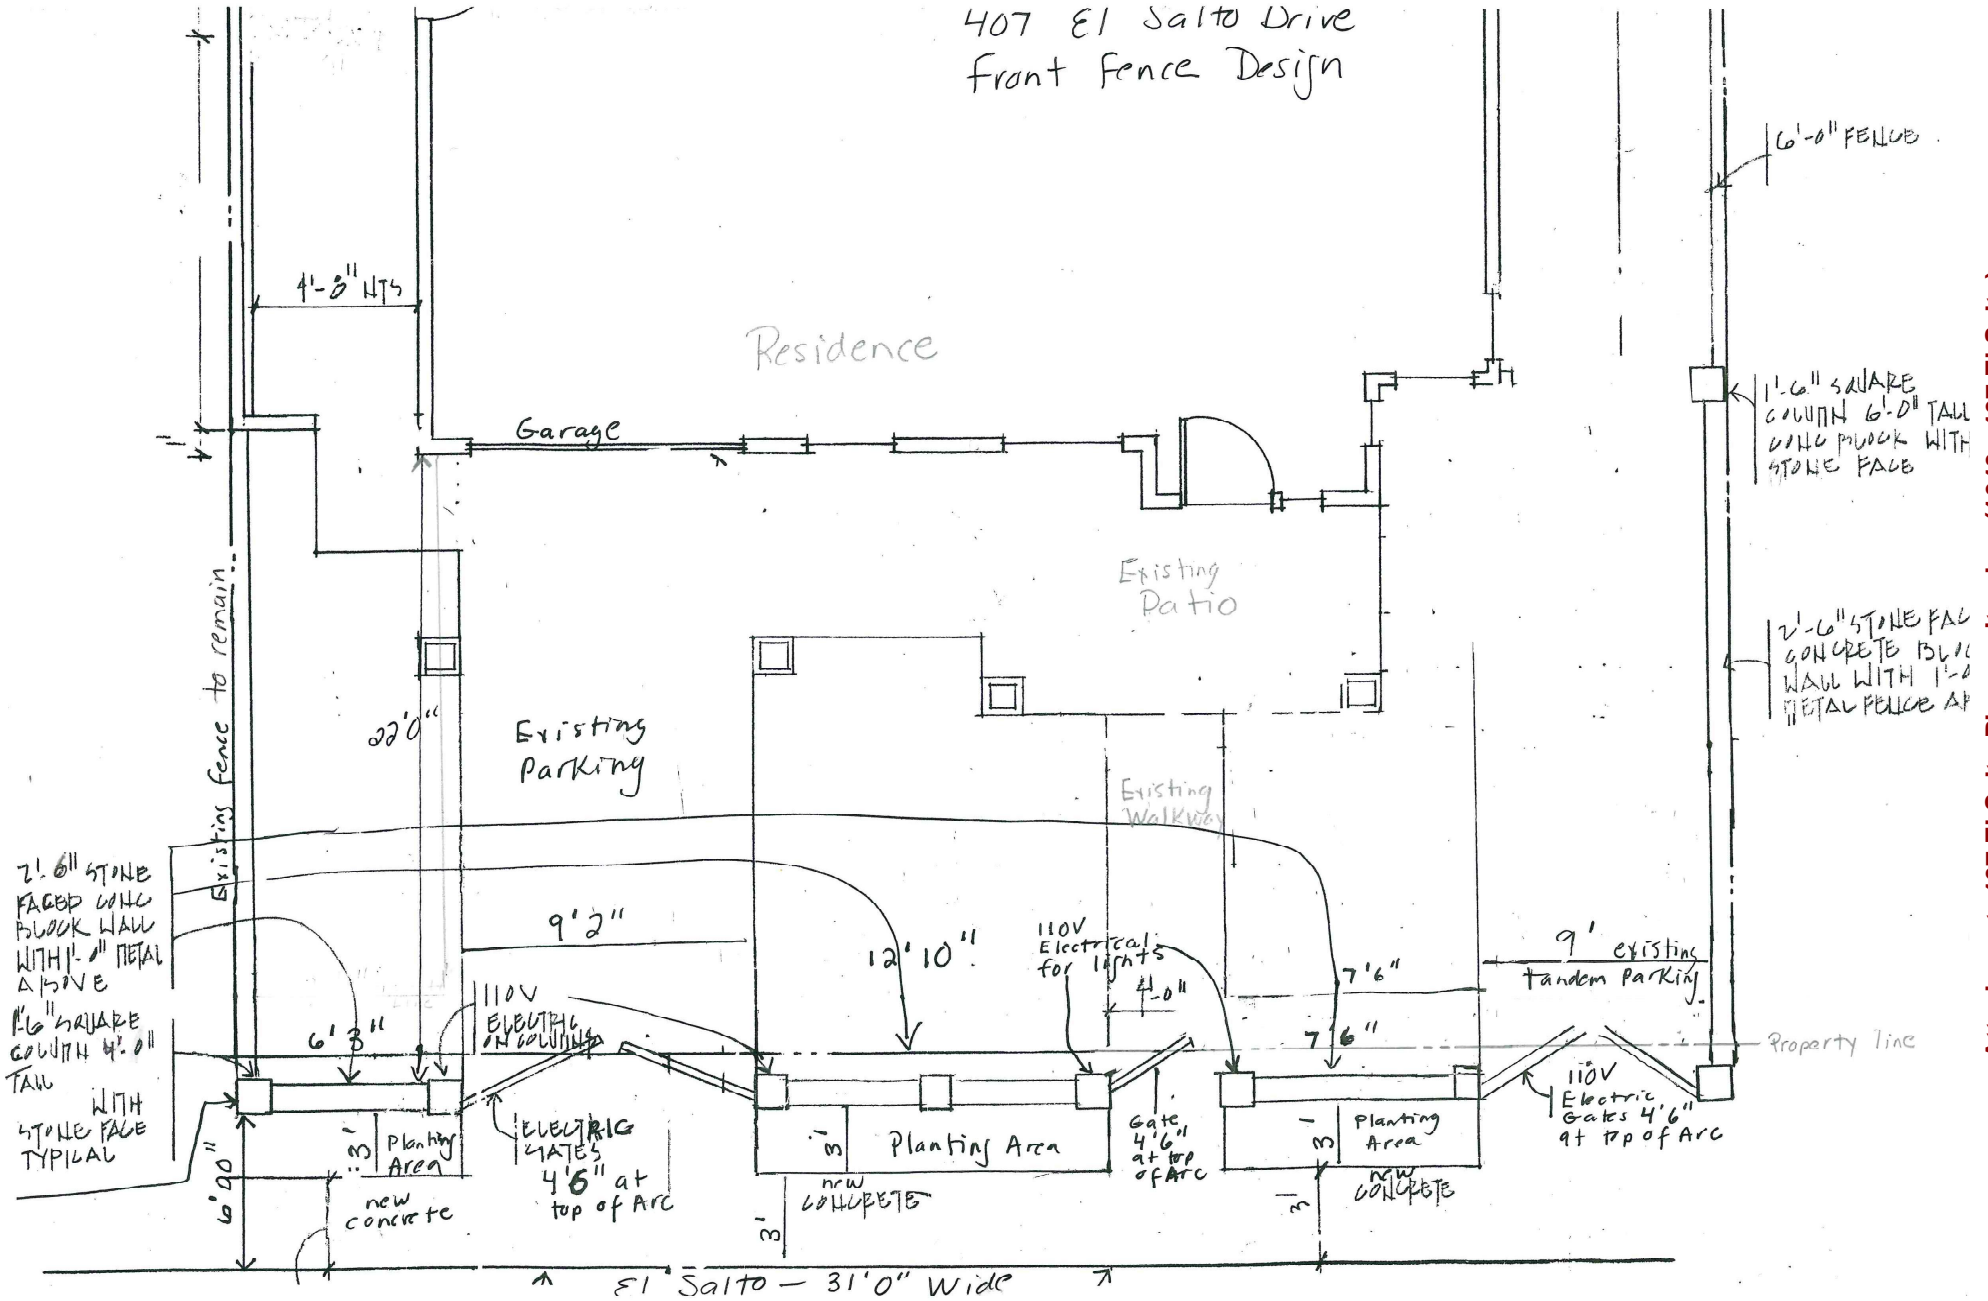 407 El Salto Drive
Front Fence Design
6'-0" FENCE
4'-0" NTS
Residence
Garage
1'
1'-6" SQUARE
COLUMN 6'-0" TALL
CONC BLOCK WITH
STONE FACE
Existing
Patio
Existing fence to remain
2'-6" STONE FAC
CONCRETE BLOC
WALL WITH 1'-0
METAL FENCE AB
22'0"
Existing
Parking
Existing
Walkway
2'-6" STONE
FACED CONC
BLOCK WALL
WITH 1'-0" METAL
ABOVE
1'-6" SQUARE
COLUMN 4'-0"
TALL
WITH
STONE FACE
TYPICAL
9'2"
12'10"
110V
Electrical
for lights
4'-0"
7'6"
9' existing
Tandem Parking
6'3"
110V
ELECTRIC
ON COLUMNS
7'6"
Property line
3'
Planting
Area
ELECTRIC
GATES
4'6" at
top of Arc
3'
Planting Area
Gate
4'6"
at top
of Arc
3'
Planting
Area
110V
Electric
Gates 4'6"
at top of Arc
6'00"
new
concrete
new
CONCRETE
3'
new
CONCRETE
3'
El Salto - 31'0" Wide